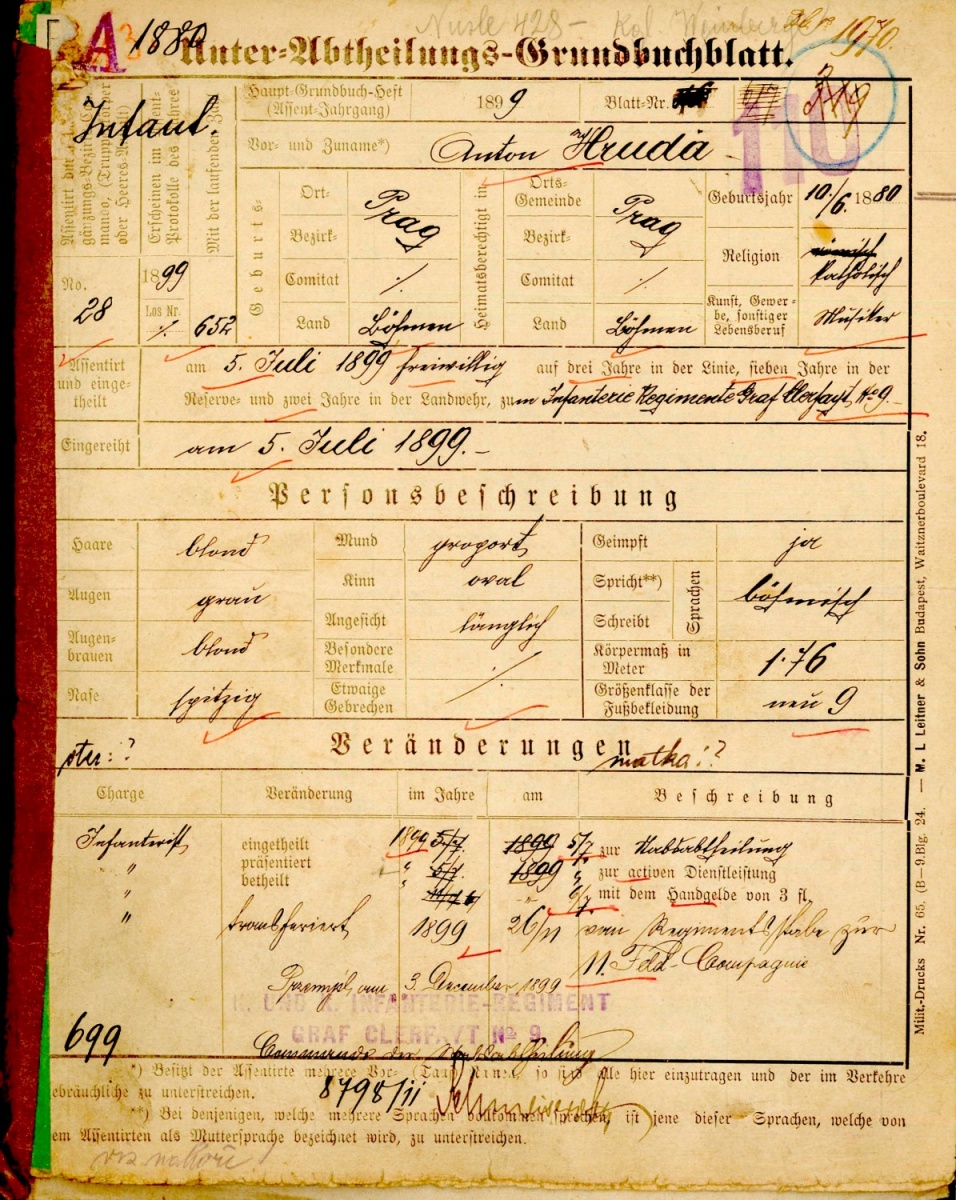 Nusle 428 - Kgl. Weinberge
1970.
A 1880
Unter-Abtheilungs-Grundbuchblatt.
Infant.
Haupt-Grundbuch-Heft
(Assent-Jahrgang)
1899
Blatt-Nr.
110
Vor- und Zuname*)
Anton Hruda
Assentirt
Erscheinen im
Protokolle des
Mit der laufenden
oder Heeres-
No. 28
1899
Los Nr. ·/.
652
Geburts-
Ort- Prag
Bezirk-
Comitat ·/.
Land Böhmen
Heimatsberechtigt in
Orts-Gemeinde Prag
Bezirk-
Comitat ·/.
Land Böhmen
Geburtsjahr 10./6. 1880
Religion römisch
katholisch
Kunst, Gewer-
be, sonstiger
Lebensberuf
Musiker
Assentirt
und einge-
theilt
am 5. Juli 1899 freiwillig auf drei Jahre in der Linie, sieben Jahre in der
Reserve- und zwei Jahre in der Landwehr, zum Infanterie Regimente Graf Clerfayt No 9.-
Eingereiht am 5. Juli 1899.-
Personsbeschreibung
Haare blond
Augen grau
Augen-
brauen blond
Nase spitzig
Mund proport
Kinn oval
Angesicht länglich
Besondere
Merkmale
Etwaige
Gebrechen
·/.
Geimpft ja
Spricht**)
Schreibt
Sprachen
böhmisch
Körpermaß in
Meter 1·76
Größenklasse der
Fußbekleidung neu 9
Veränderungen
otec:?
matka:?
Charge
Veränderung
im Jahre
am
Beschreibung
Infanterist eingetheilt 1899 5/7 1899 5/7 zur Stabsabtheilung
" präsentiert " 5/7. 1899 " zur activen Dienstleistung
" betheilt " " 6/7 mit dem Handgelde von 3 fl.
" transferiert 1899 26/11 vom Regimentsstabe zur
11. Feld-Compagnie
Przemyśl, am 3. December 1899
K. UND K. INFANTERIE-REGIMENT
GRAF CLERFAYT No 9
699
Commando der Stabsabtheilung
*) Besitzt der Assentirte mehrere Vor- (Tauf-) Namen, so sind alle hier einzutragen und der im Verkehre
gebräuchliche zu unterstreichen.
8798/11
**) Bei denjenigen, welche mehrere Sprachen vollkommen sprechen, ist jene dieser Sprachen, welche von
dem Assentirten als Muttersprache bezeichnet wird, zu unterstreichen.
viz nahoře
Milit.-Drucks Nr. 65. (B-9.Blg. 24. — M. L Leitner & Sohn Budapest, Waitznerboulevard 18.